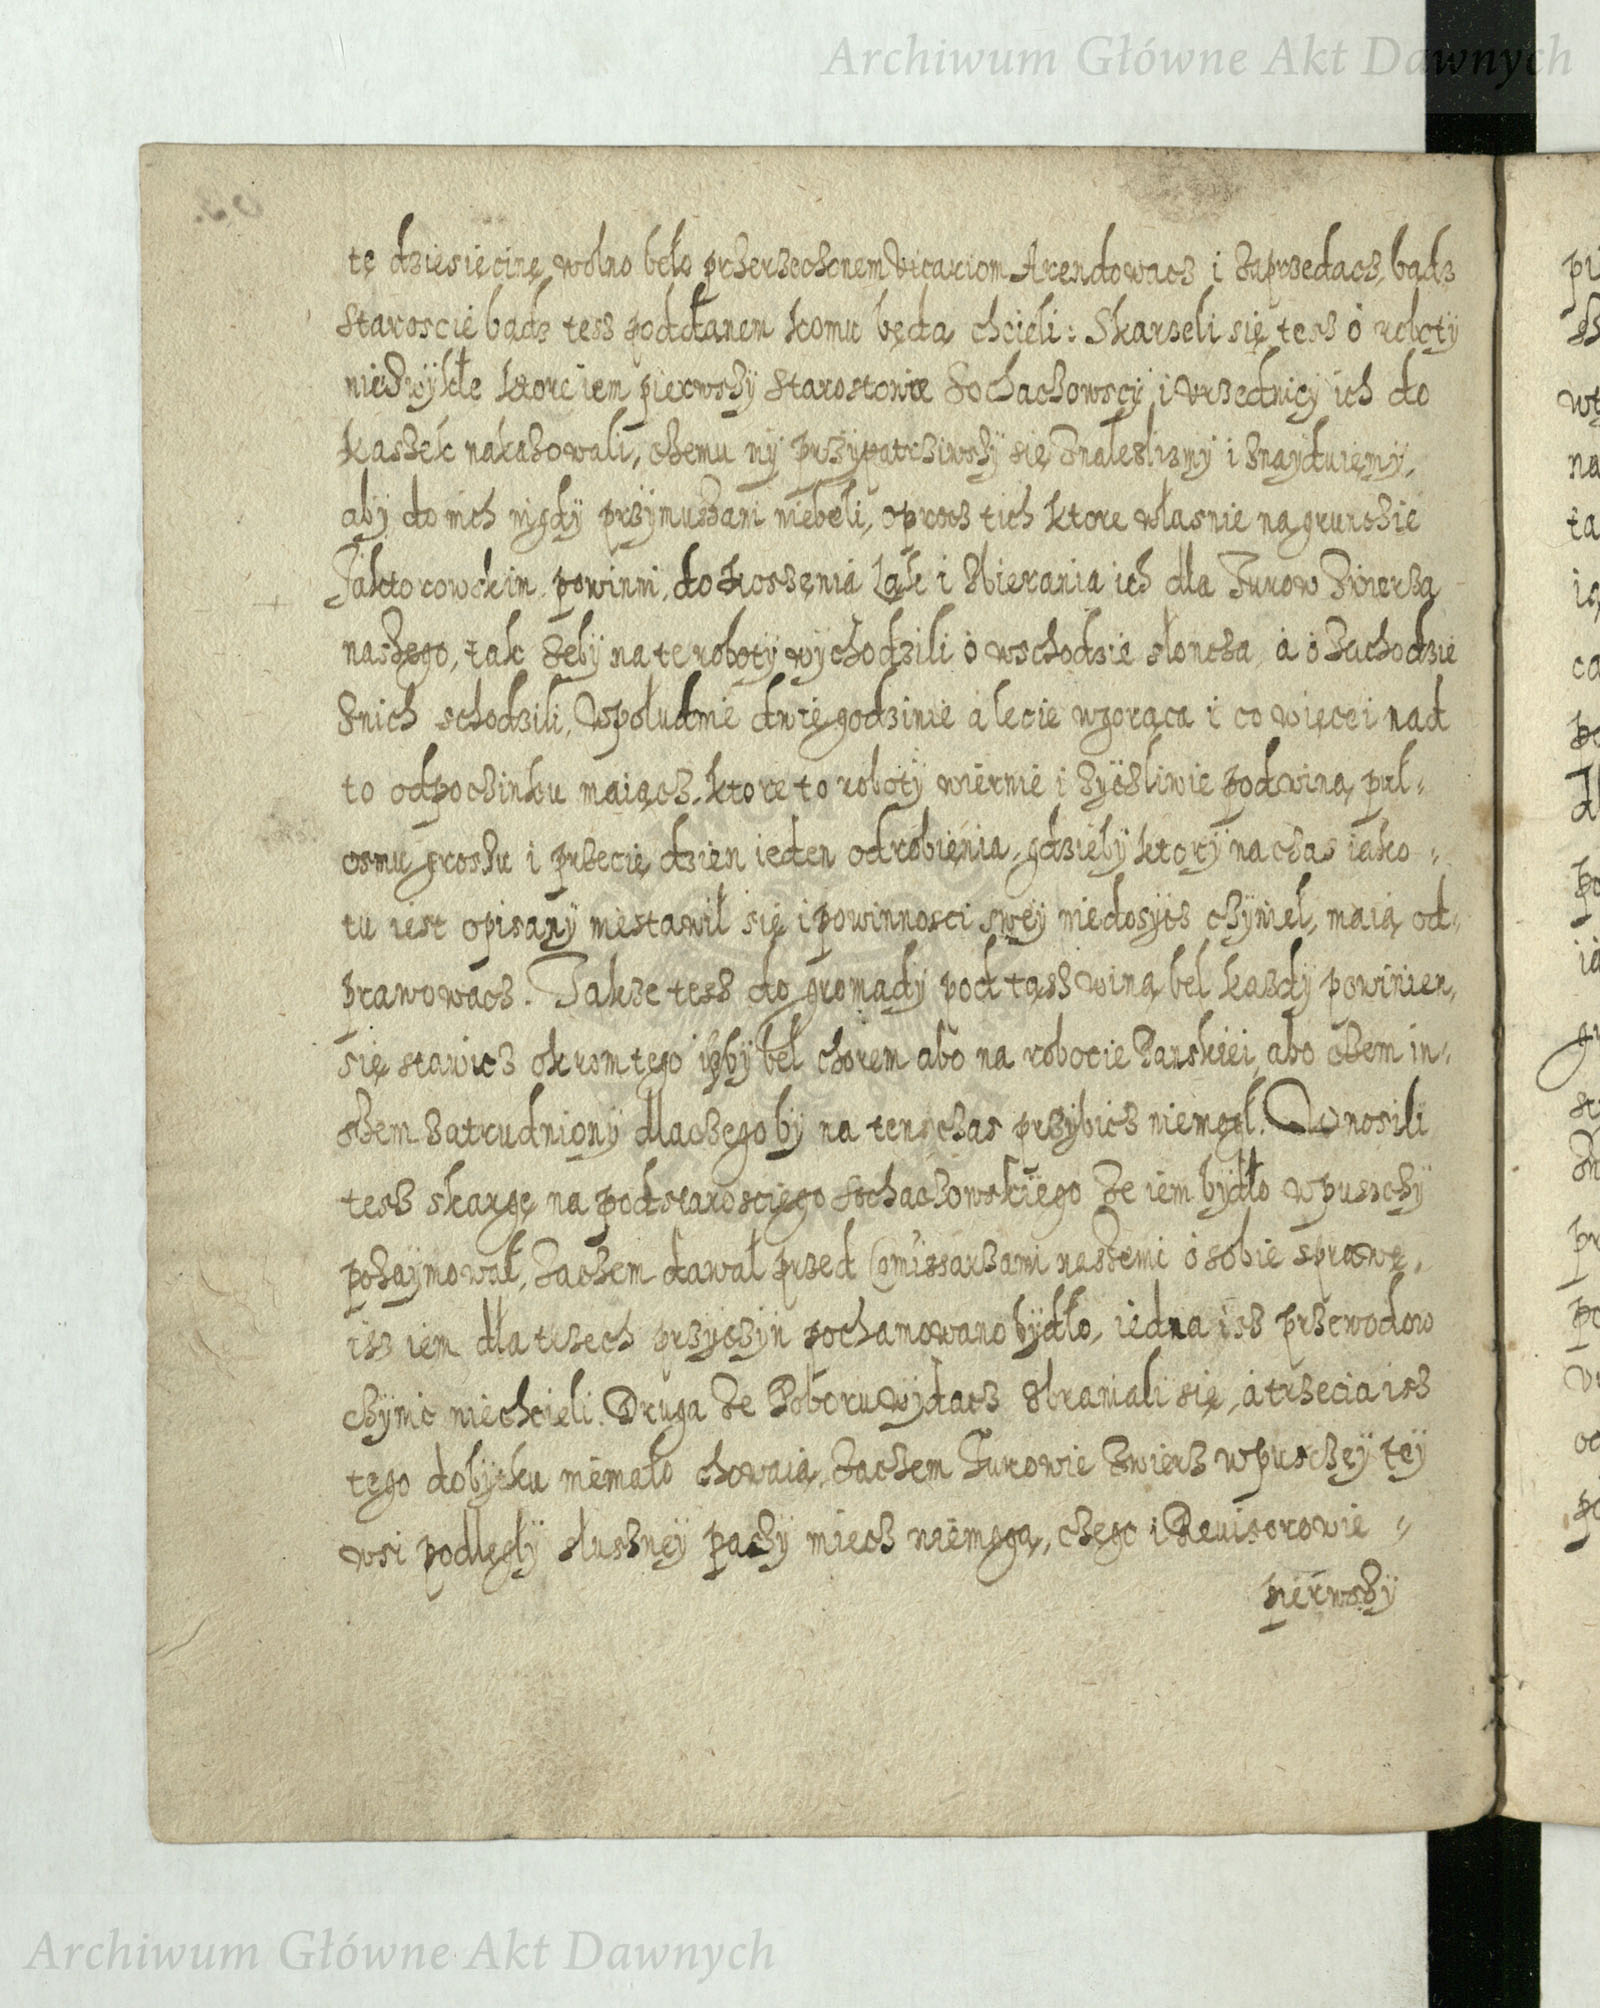 Archiwum Główne Akt Dawnych
tę dziesięcinę wolno beło przerzeczonem Vicariom Arendowacz i zaprzedacz, bądz
Staroscie bądz tesz poddanem komu będą chcieli: Skarzeli się tesz o roboty
niezwykłe ktore iem pierwszy Starostowie Sochaczowscy i vrzędnicy ich do
kaszek nakazowali, czemu my przypatrziwszy się znaleslizmy i znayduięmy,
aby do nich nigdy przymuszani niebeli, oprocz tich ktore własnie na grunczie
Jaktorowskim powinni, do koszęnia Łąk i zbierania ich dla Turow zwierza
naszego, tak żeby na te roboty wychodzili o wschodzie słoncza, a o zachodzie
znich schodzili, Wpołudnie dwie godzinie a lecie wgorąca i co więcei nad
to odpoczinku maiącz, ktore to roboty wiernie i zycżliwie pod winą puł-
osmu groszu i przecię dzien ieden odrobięnia, gdzieby ktory na czas iako-
tu iest opisany niestawił się i powinnosci swey niedosycz czyniel, maią od-
prawowacz. Takze tesz do gromady pod tąsz winą bel kazdy powinien,
się stawicz okrom tego iżby bel chorem abo na robocie Panskiei, abo czem in-
szem zatrudniony dlaczego by na ten czas przybicz niemogł. Wnosili
tesz skargę na podstarosciego Sochaczowskiego że iem bydło wpuszczy
pozaymował, Zaczem dawał przed Comissarzami naszemi o sobie sprawę,
isz iem dla trzech przyczyn pochamowano bydło, iedna isz przewodow
czynic niechcieli. Druga że Poboru wydacz zbraniali się, a trzecia isz
tego dobytku niemało chowaią, Zaczem Turowie zwierz wpuszczy tey
wsi podległy słuszney paszy miecz niemogą, czego i Reuisorowie -
pierwszy
Archiwum Główne Akt Dawnych